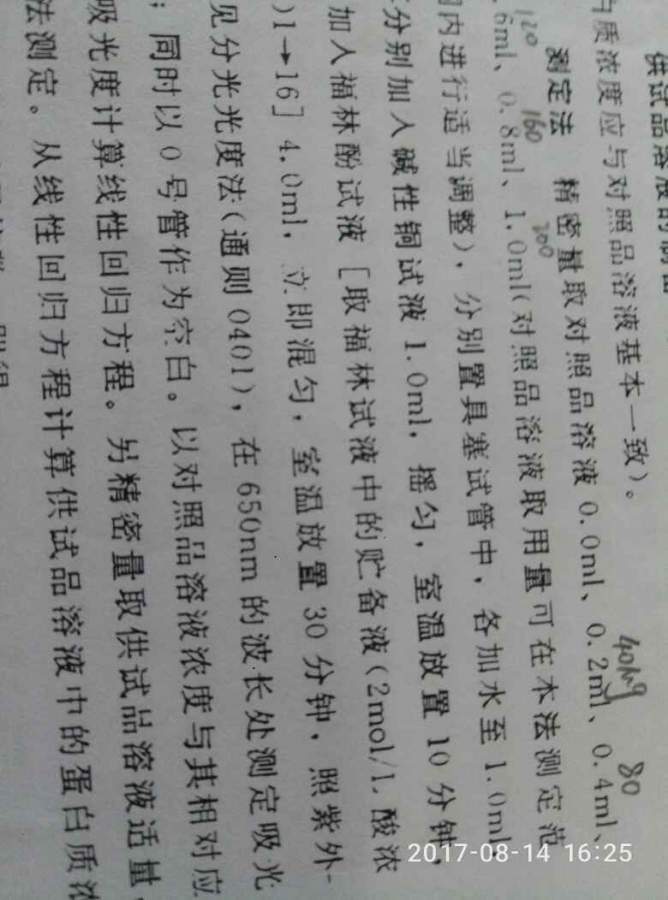 供试品溶液的制备
白质浓度应与对照品溶液基本一致)。
测定法 精密量取对照品溶液 0.0ml、0.2ml、0.4ml、
.6ml、0.8ml、1.0ml(对照品溶液取用量可在本法测定范
内进行适当调整),分别置具塞试管中,各加水至 1.0ml,
分别加入碱性铜试液 1.0ml,摇匀,室温放置 10 分钟,
加入福林酚试液[取福林试液中的贮备液(2mol/L 酸浓
)1→16] 4.0ml,立即混匀,室温放置 30 分钟,照紫外-
见分光光度法(通则 0401),在 650nm 的波长处测定吸光
;同时以 0 号管作为空白。以对照品溶液浓度与其相对应
吸光度计算线性回归方程。另精密量取供试品溶液适量,
法测定。从线性回归方程计算供试品溶液中的蛋白质浓
40μg
80
120
160
200
2017-08-14 16:25